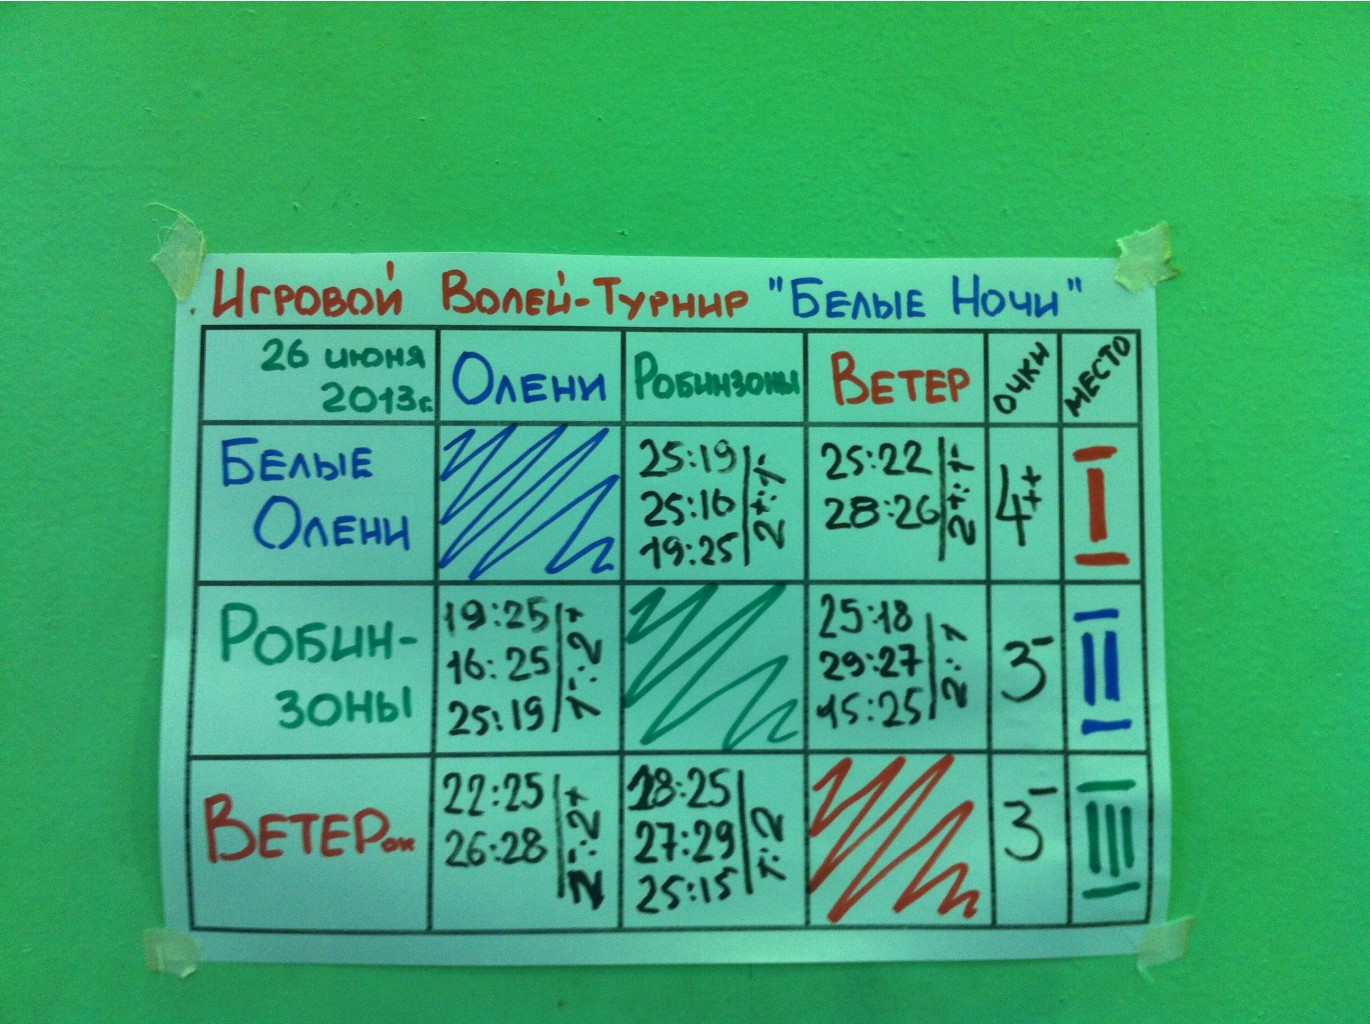 Игровой Волей-Турнир "Белые Ночи"
26 июня
2013г.
Олени
Робинзоны
Ветер
очки
место
Белые
Олени
25:19
25:16
19:25
2+:1-
25:22
28:26
2+:1-
4++
I
Робин-
зоны
19:25
16:25
25:19
1-:2+
25:18
29:27
15:25
2:1
3-
II
Ветерок
22:25
26:28
:2+
18:25
27:29
25:15
1:2
3-
III